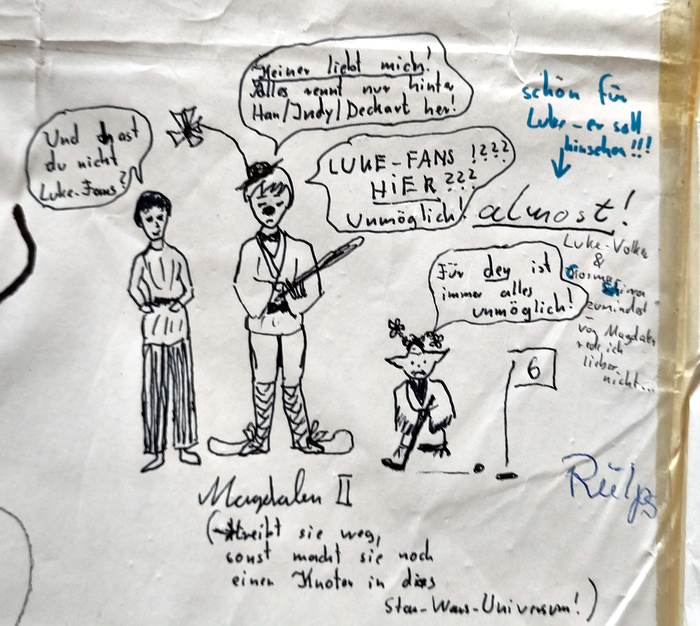 Keiner liebt mich!
Alles rennt nur hinter
Han/Indy/Deckart her!
Und was hast
du nicht
Luke-Fans?
LUKE-FANS !???
HIER ???
Unmöglich!
almost!
schön für
Luke-er soll
hinsehen!!!
Für den ist
immer alles
unmöglich!
Luke-Volker
&
zumindest
von Magdalen
rede ich
lieber
nicht...
6
Rülps
Magdalen II
(streibt sie weg,
sonst macht sie noch
einen Knoten in das
Star-Wars-Universum!)